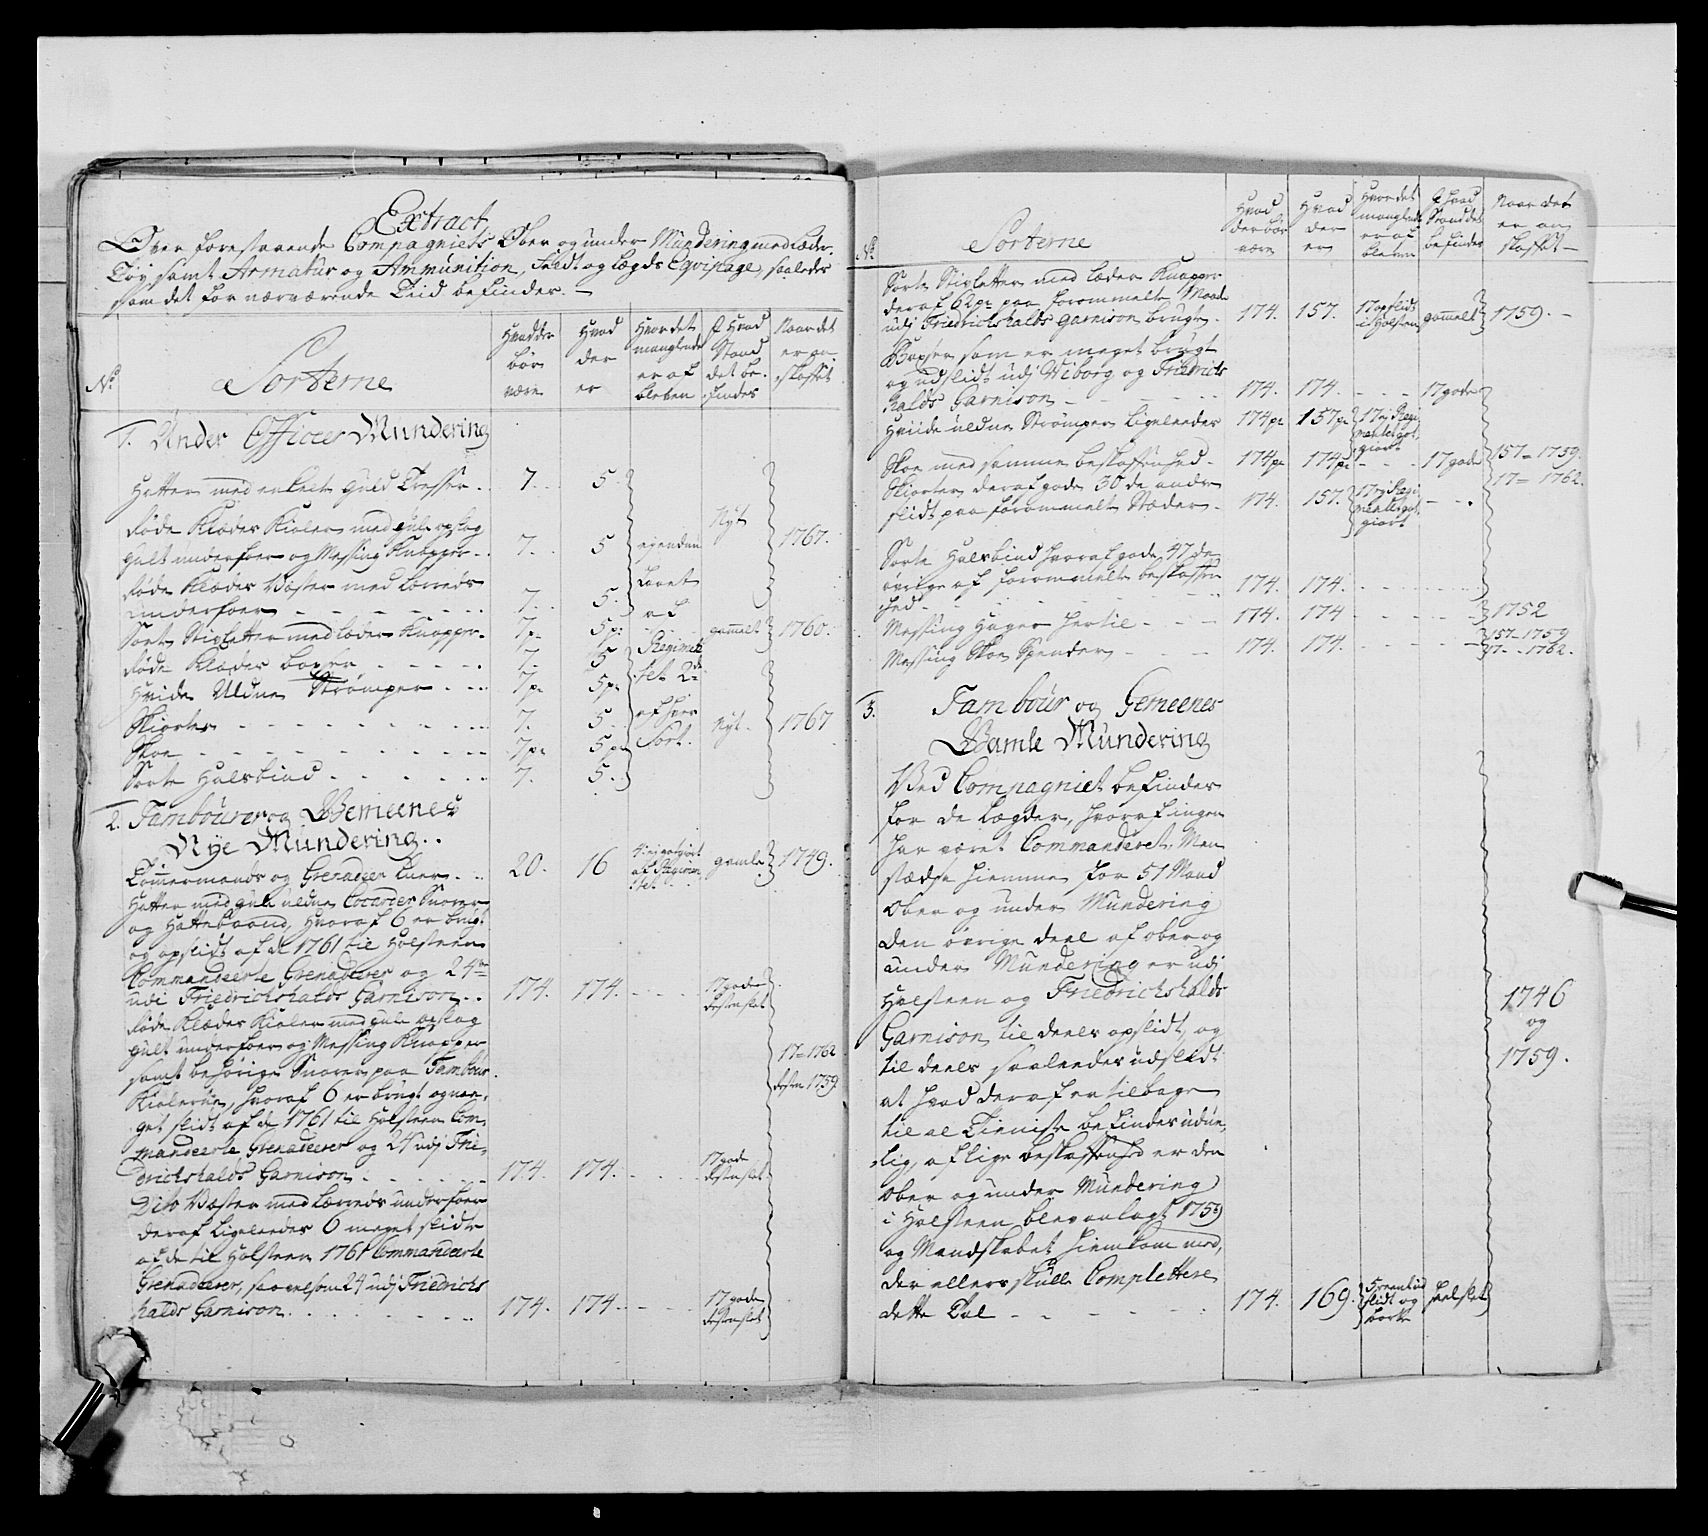 Extract
Over forestaaende Compagniets Ober og under Mundering med læder
Tøy samt Armatur og Ammunition, Feldt og lægds Equipage, saaledes
som det for nærværende Tiid befindes. —
No. Sorterne
Hvad der bør være
Hvad der er
Hvor det manglende er af bleven
I Hvad Stand det befindes
Naar det er anskaffet
1. Under Officers Mundering
Hatter med enkelt Guld Tresser . . 7. 5.
Røde Klæder Kioler med gule opslag
gult underfoer og Messing Knapper . . 7. 5 Nyt 1767.
Røde Klæder Væster med Lerreds
underfoer - - - - - - 7. 5.
Sorte Stigletter med læder Knapper. 7 pr 5 pr: gammelt 1760.
Røde Klæder boxer . . . . . 7. 5
Hvide Uldne Strømper . . . 7 pr 5 pr
Skiorter - - - - - - - - 7. 5. Nyt. 1767
Skoe - - - - - - - - 7 pr 5 pr
Sorte Halsbind . . . . . . 7. 5.
af Regimentet 2de af hver Sort.
2. Tambourer og Gemeenes
Nye Mundering . .
Tømmermænds og Grenadeer Luer . . 20. 16 gamle 1749.
Hatter med gule uldne Cocarder Snorer
og Hattebaand, hvoraf 6 er brugt
og opslidt af de 1761 til Holsteen
Commandeerte Grenaderer og 24re
udi Friedrichshalds Garnison . . 174. 174. 17 gode Resten slet
Røde Klæder Kioler med gule opslag
gult underfoer og Messing Knapper
samt behørige Snorer paa Tambour
Kiolerne, hvoraf 6 er brugt og meget
slidt af de 1761 til Holsteen Com,
mandeerte Grenaderer og 24 udj Frie,
drichshalds Garnison . . . . 174. 174. 17 gode Resten slet
17 = 1762
Resten 1759
Dito Væster med Lærreds underfoer
deraf Ligeleedes 6 meget slidte
af de til Holsteen 1761 Commandeerte
Grenaderer, saavelsom 24 udj Friedrichs
halds Garnison . . . . . . 174. 174. 17 gode Resten slet
No. Sorterne
Hvad der bør være
Hvad der er
Hvor det manglende er af bleven
I hvad Stand det befindes
Naar det er anskaffet —
Sorte Stigletter med læder Knapper
deraf 62 pr paa forommelte Maade
udj Friedrichshalds Garnison brugte . 174. 157. 17 opslidt i Holsteen gammelt 1759. —
Boxser som er meget brugt
og udslidt udj Wiborg og Friedrichs
halds Garnison - - - - - 174. 174. 17 gode
Hviide uldne Strømper ligeleedes 174 pr 157 pr
Skoe med samme beskaffenhed . 174 pr 174 pr 17 gode 157 = 1759.
17 = 1762.
Skiorter deraf gode 30 de andre
slidt paa forommelte Stæder . 174. 157.
Sorte Halsbind hvoraf gode 47 de
øvrige af forommelte beskaffen
hed - - - - - 174. 174.
Messing Hager hertil - - - 174. 174 1752
Messing Skoe Spender - - - 174. 174. 157 - 1759
17 - - 1762.
3. Tambour og Gemeenes
Gamle Mundering
Ved Compagniet befindes
for de lægder, hvoraf ingen
har været Commanderet, Men
stædse hiemme for 51 Mand
Ober og under Mundering
den øvrige deel af ober og
under Mundering er udj
Holsteen og Friedrichshalds
Garnison til deels opslidt, og
til deels saaleedes udslidt
at hvad deraf er tilbage
til al Tieniste befindes udue,
lig, aflige beskaffenhed er den
Ober og under Mundering
i Holsteen blev anlagt 1759
og Mandskabet hiemkom med,
der ellers skulle Complettere
dette Tal - - - - - 174. 169. slidt og
1746
og
1759.